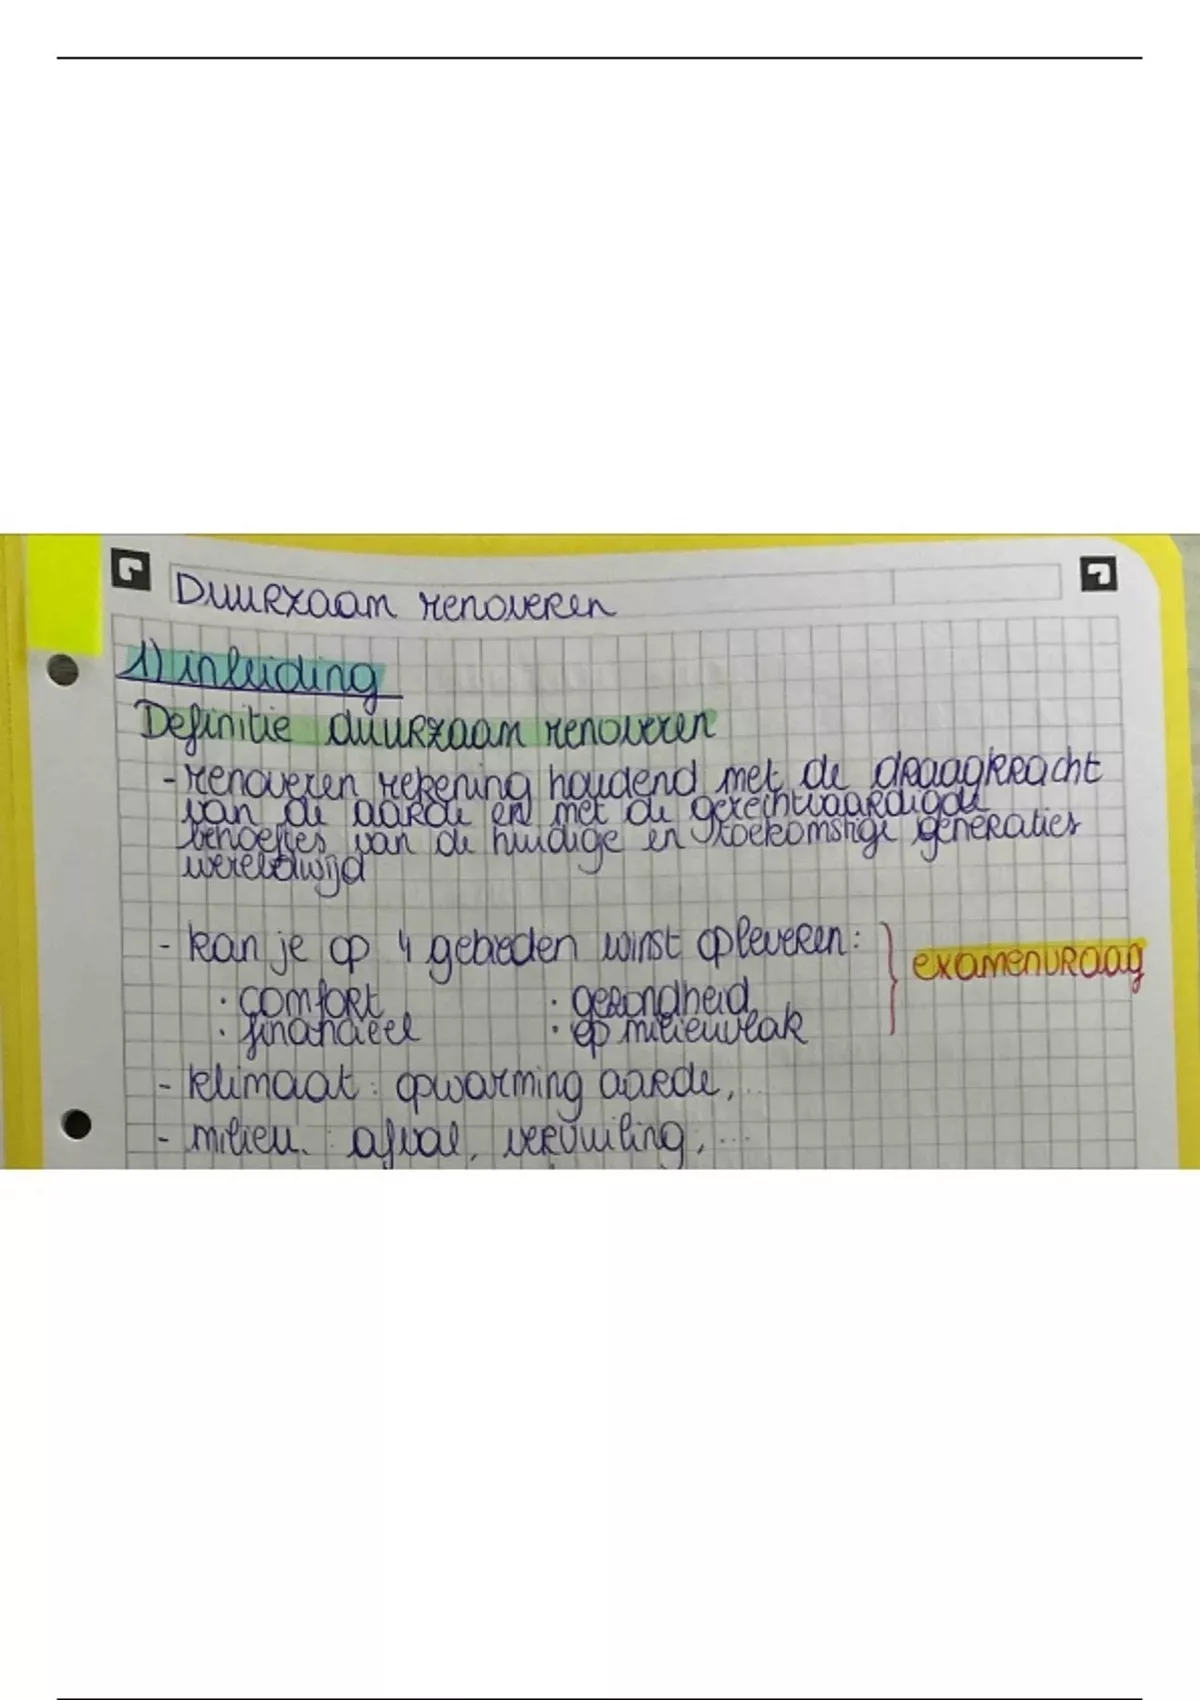 Duurzaam renoveren
1) inleiding
Definitie duurzaam renoveren
- renoveren rekening houdend met de draagkracht
van de aarde en met de gerechtvaardigde
behoeftes van de huidige en toekomstige generaties
wereldwijd
- kan je op 4 gebieden winst opleveren: examenvraag
· comfort · gezondheid
· financieel · op milieuvlak
- klimaat: opwarming aarde, ...
- milieu: afval, vervuiling, ...